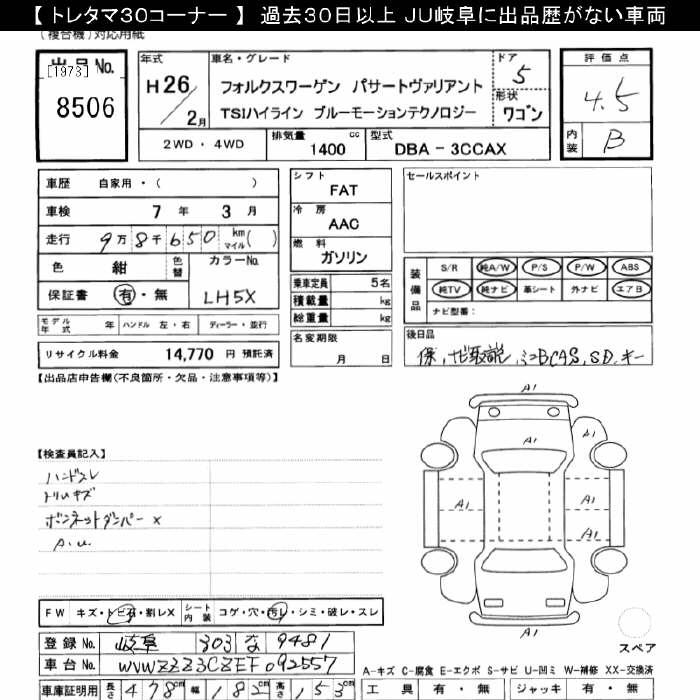 【 トレタマ30コーナー 】 過去30日以上 JU岐阜に出品歴がない車両
(複合機)対応用紙
出品No.
[1973]
8506
年式
H26/2月
車名・グレード
フォルクスワーゲン パサートヴァリアント
TSIハイライン ブルーモーションテクノロジー
ドア
5
形状
ワゴン
2WD・4WD
排気量 1400 cc
型式 DBA-3CCAX
評価点
4.5
内装 B
車歴 自家用・( )
車検 7年 3月
走行 9万8千650 km マイル( )
色 紺 色替
カラーNo.
LH5X
保証書 有・無
モデル年式 年 ハンドル 左・右 ディーラー・並行
リサイクル料金 14,770 円 預託済
シフト
FAT
冷房
AAC
燃料
ガソリン
乗車定員 5名
積載量 kg
総重量 kg
名変期限
月 日
セールスポイント
装備品
S/R 純A/W P/S P/W ABS
純TV 純ナビ 革シート 外ナビ エアB
ナビ型番:
後日品
保、ナビ取説、ミニBCAS、SD、キー
【出品店申告欄(不良箇所・欠品・注意事項等)】
【検査員記入】
ハンドスレ
トリムキズ
ボンネットダンパー×
A.U.
A1
A1
A1
A1
A1
A1
A1
A1
スペア
FW キズ・トビ石・割レX
シート内装 コゲ・穴・汚レ・シミ・破レ・スレ
登録No. 岐阜 303 な 9481
車台No. WVWZZZ3CZEF092557
A-キズ C-腐食 E-エクボ S-サビ U-凹ミ W-補修 XX-交換済
車庫証明用 長さ 478cm 幅 182cm 高さ 153cm
工具 有・無 ジャッキ 有・無